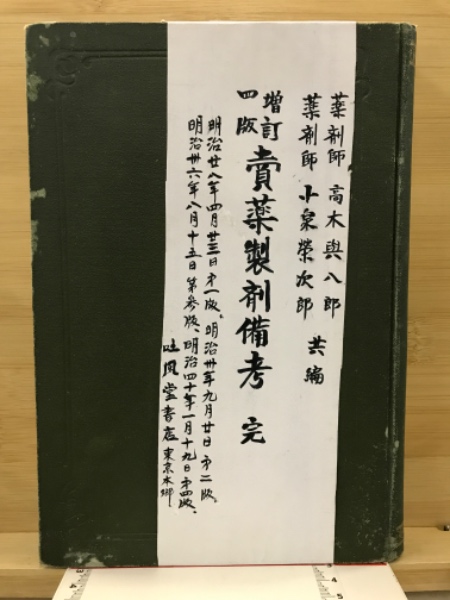 薬剤師 高木與八郎
薬剤師 小泉榮次郎 共編
増訂四版 賣薬製剤備考 完
明治廿八年四月廿三日第一版、明治卅年九月廿日第二版、
明治卅六年八月十五日第参版、明治四十年一月十九日第四版、
吐鳳堂書店 東京本郷